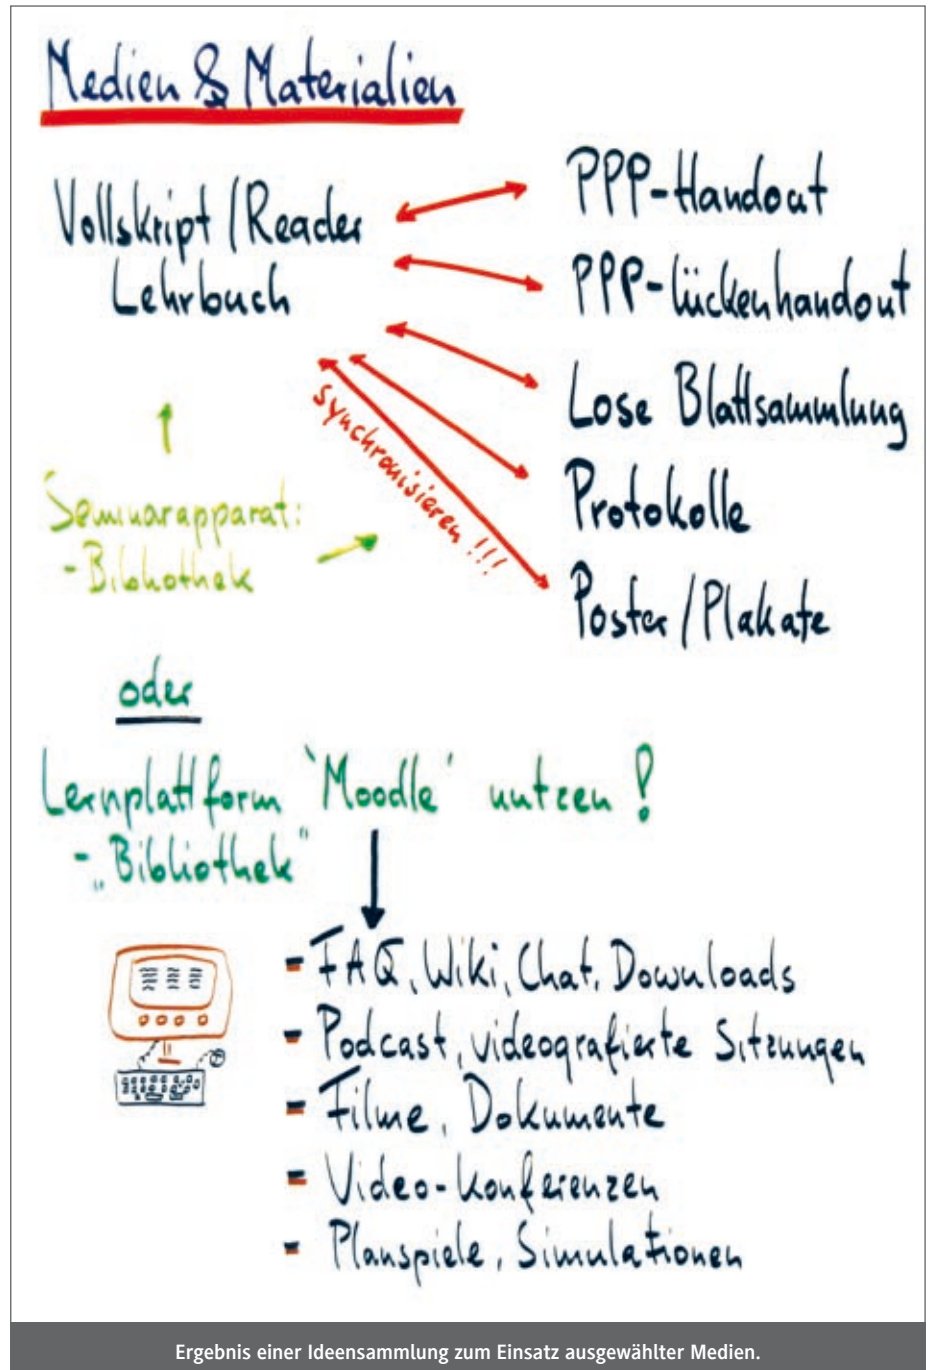 Medien & Materialien
Vollskript / Reader
Lehrbuch
PPP-Handout
PPP-Lückenhandout
Lose Blattsammlung
Protokolle
Poster / Plakate
Synchronisieren !!!
Seminarapparat:
- Bibliothek
oder
Lernplattform 'Moodle' nutzen!
- „Bibliothek"
- FAQ, Wiki, Chat, Downloads
- Podcast, videografierte Sitzungen
- Filme, Dokumente
- Video-Konferenzen
- Planspiele, Simulationen
Ergebnis einer Ideensammlung zum Einsatz ausgewählter Medien.